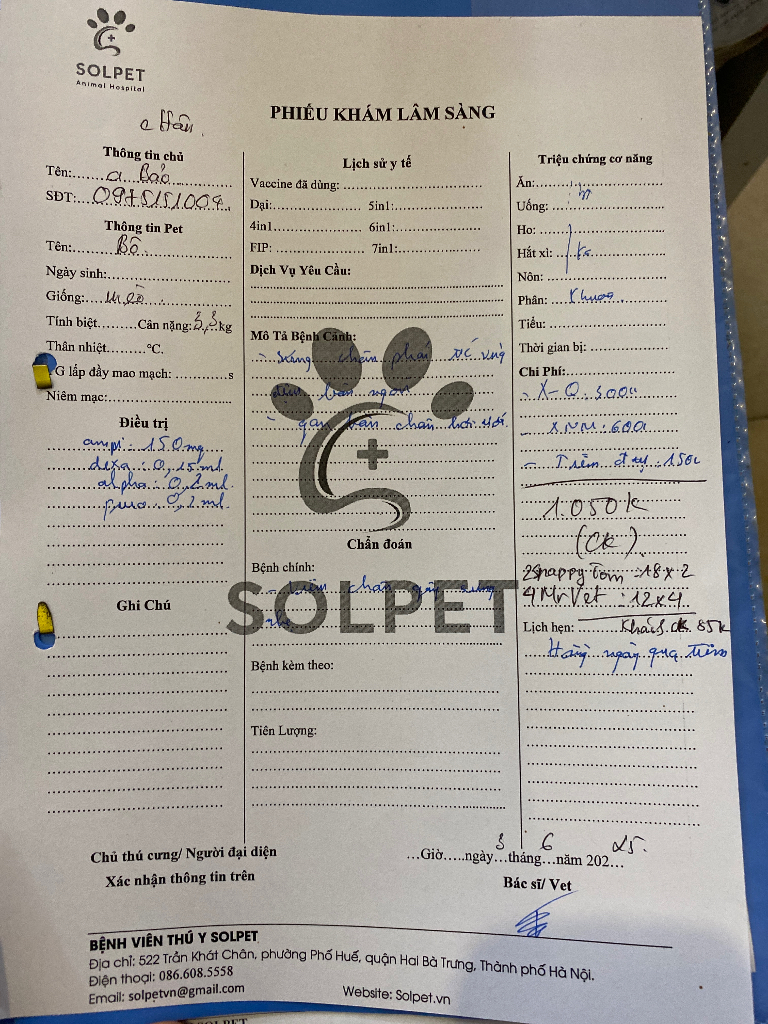 SOLPET
Animal Hospital
PHIẾU KHÁM LÂM SÀNG
c Hân.
Thông tin chủ
Tên: a Bảo
SĐT: 0975151004
Thông tin Pet
Tên: Bô
Ngày sinh:
Giống: mèo
Tính biệt.........Cân nặng: 3,3kg
Thân nhiệt.........°C.
G lấp đầy mao mạch: ............s
Niêm mạc:
Điều trị
ampi: 150mg
dexa: 0,15ml
alpha: 0,2ml
furo: 0,2ml
Ghi Chú
Lịch sử y tế
Vaccine đã dùng:
Dại:.................... 5in1:
4in1.................... 6in1:
FIP:.................... 7in1:
Dịch Vụ Yêu Cầu:
Mô Tả Bệnh Cảnh:
- Sưng chân phải
- gan bàn chân hơi
SOLPET
Chẩn đoán
Bệnh chính:
- Viêm chân
Bệnh kèm theo:
Tiên Lượng:
Triệu chứng cơ năng
Ăn:
Uống:
Ho:
Hắt xì: Ko
Nôn:
Phân:
Tiểu:
Thời gian bị:
Chi Phí:
- X-Q: 300k
- XNM: 600k
- Tiêm đtrị: 150k
1.050k
(CK)
2 Snappy Tom: 18 x 2
4 Mr Vet: 12 x 4
Lịch hẹn: Khách ck 85k
Hàng ngày qua tiêm
Chủ thú cưng/ Người đại diện
Xác nhận thông tin trên
...Giờ.....ngày 3 tháng 6 năm 202 25.
Bác sĩ/ Vet
BỆNH VIỆN THÚ Y SOLPET
Địa chỉ: 522 Trần Khát Chân, phường Phố Huế, quận Hai Bà Trưng, Thành phố Hà Nội.
Điện thoại: 086.608.5558
Email: solpetvn@gmail.com Website: Solpet.vn